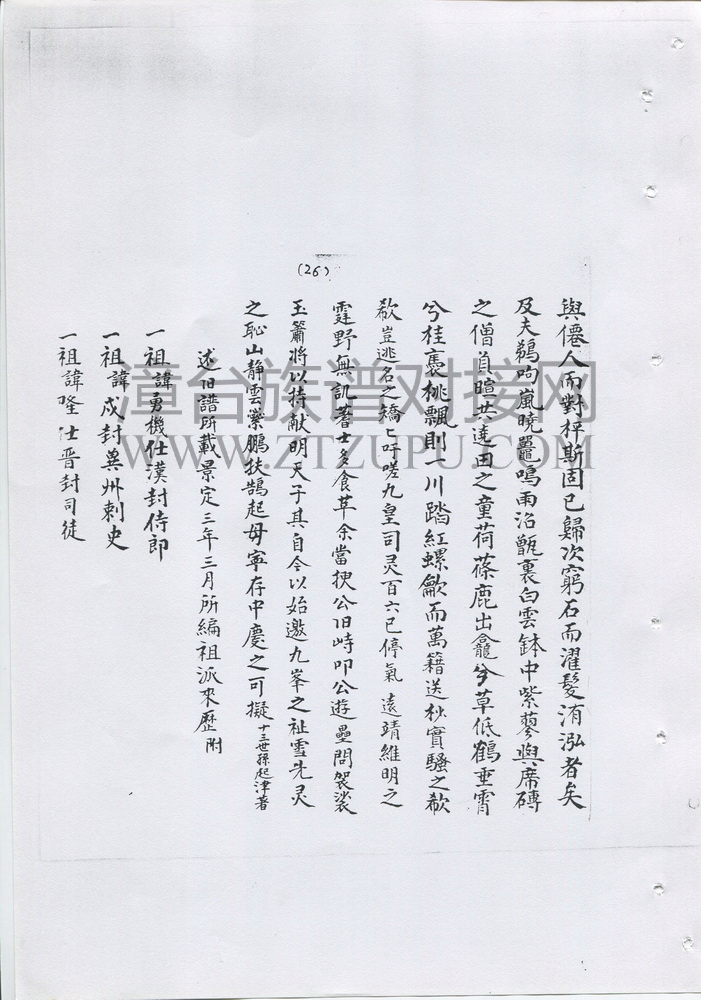 (26)
與僊人而對枰斯固已歸次窮石而濯髮洧泓者矣
及夫鵝呴嵐曉鼉鳴雨治甑裏白雲鉢中紫蓼與席磚
之僧首暄共遶田之童荷蓧鹿出龕兮草低鶴垂霄
兮桂褭桃飄則一川踏紅螺龡而萬籟送秋實騷之欷
欷豈逃名之矯匕吁嗟九皇司灵百六已停氣遠靖維明之
霆野無飢蓄士多食草余當挭公旧峙叩公遊壘問袈裟
玉簫將以持献明天子其自今以始邀九峯之祉雪先灵
之恥山靜雲瀠鵬扶鵠起毋寧存中慶之可擬 十三世孫起津著
述旧譜所載景定三年三月所編祖派來歷附
一祖諱勇機仕漢封侍郎
一祖諱成封冀州刺史
一祖諱隆仕晋封司徒
漳台族谱对接网
WWW.ZTZUPU.COM